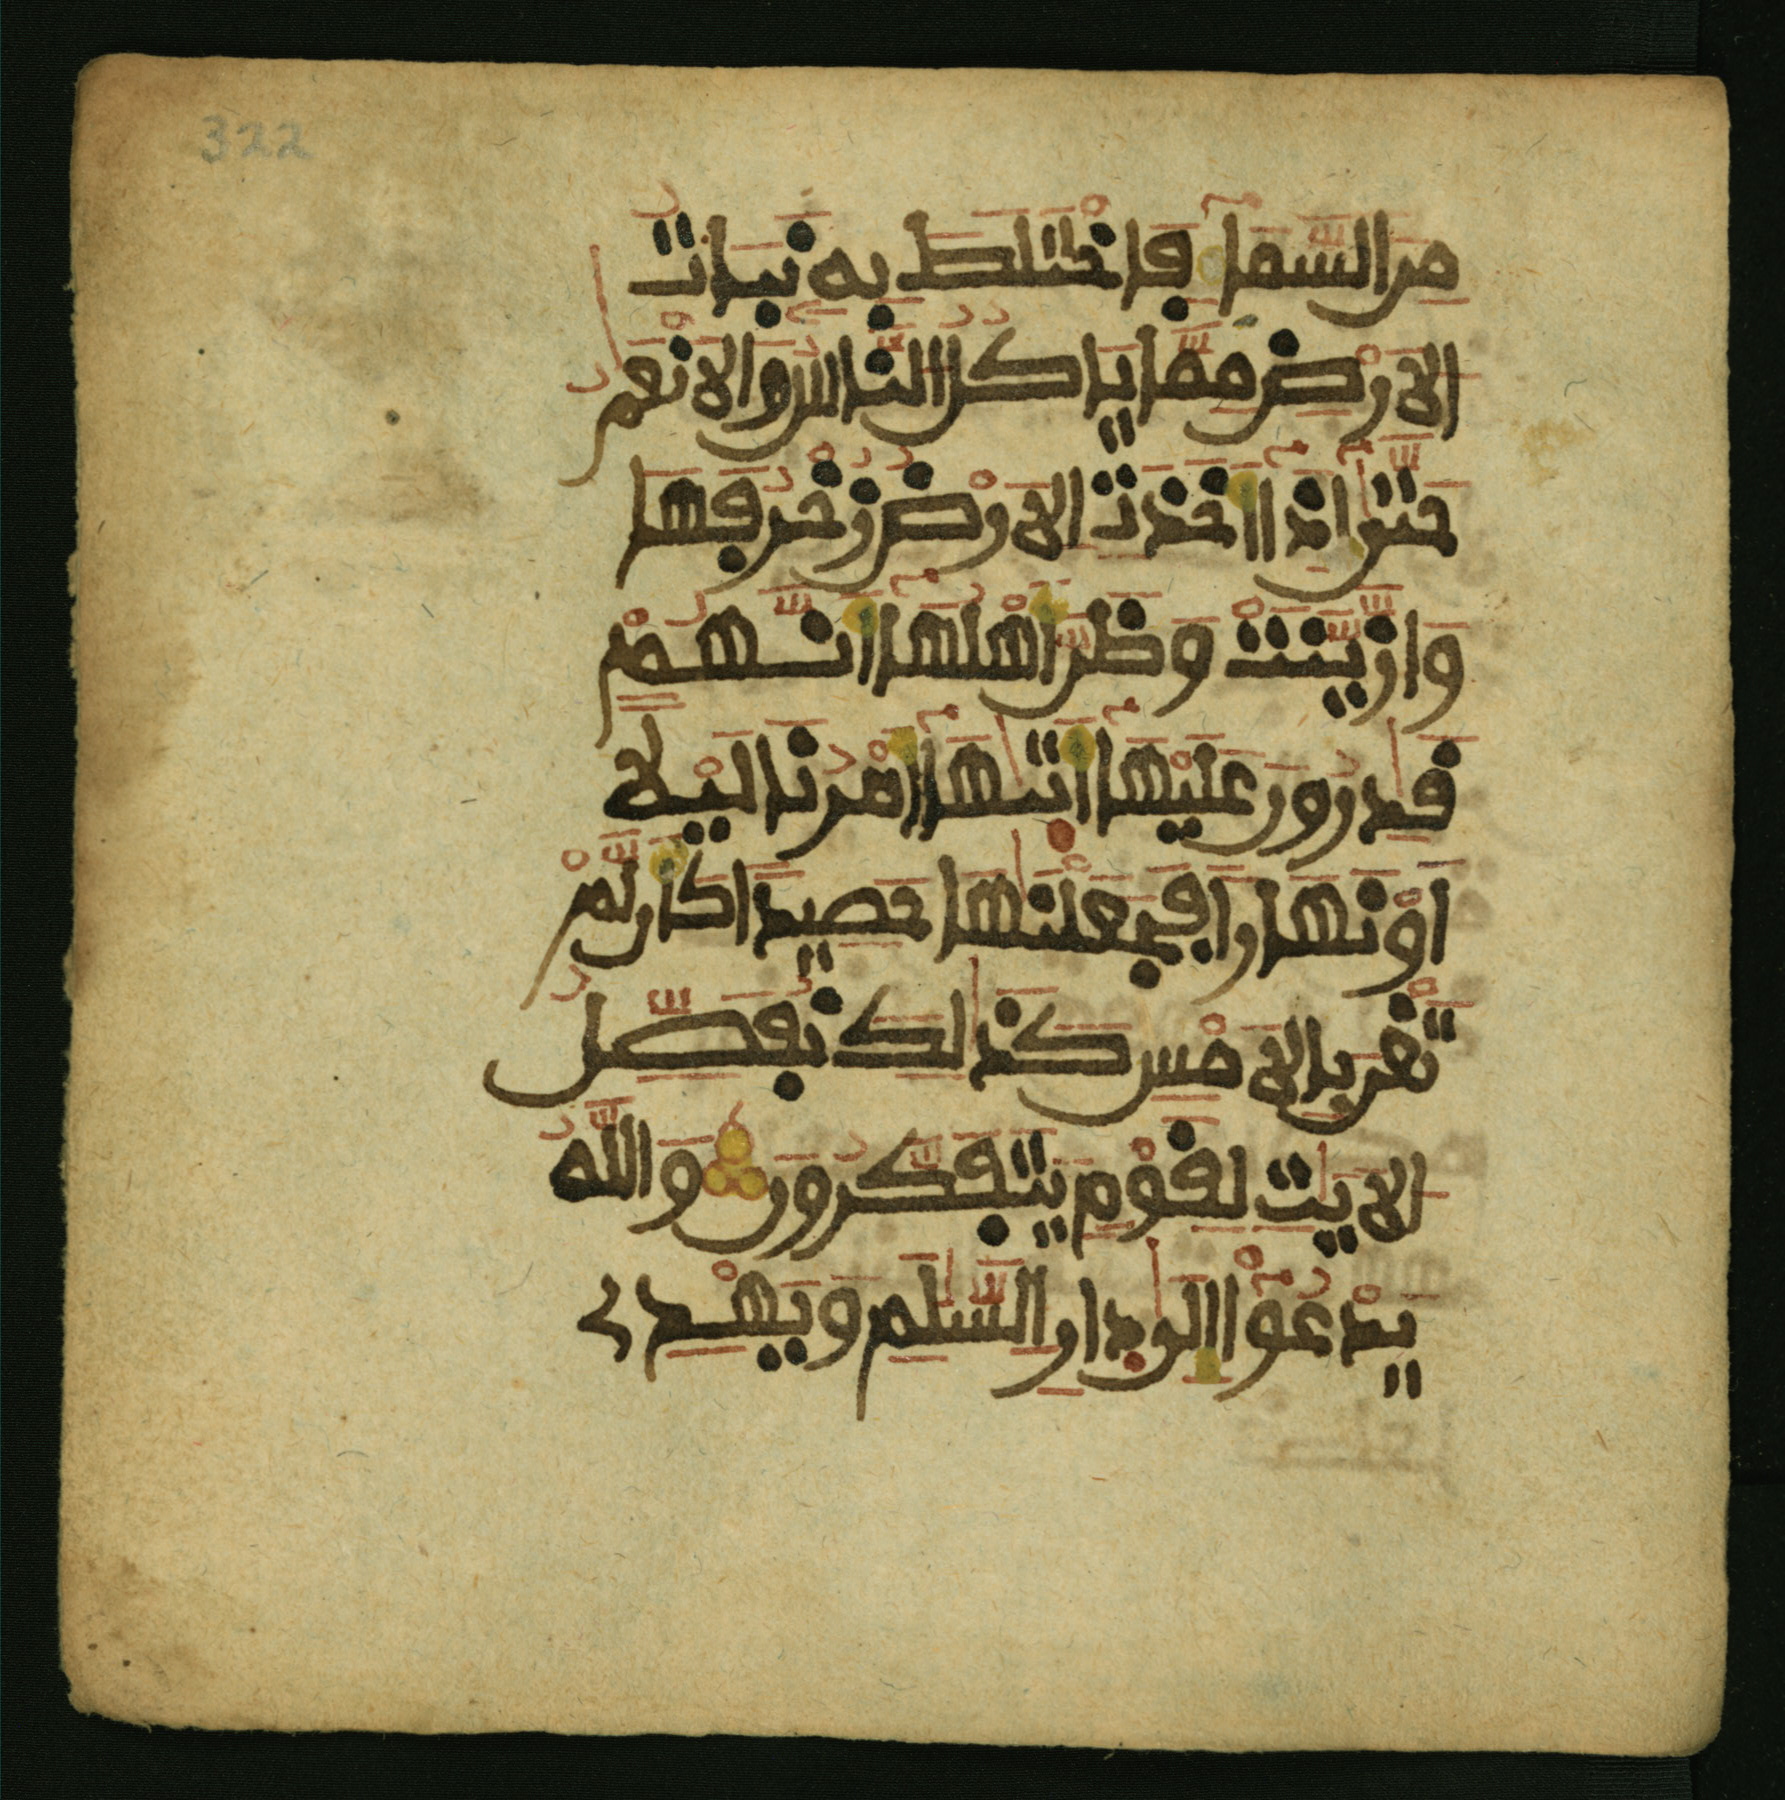 322
مِنَ السَّمَآءِ فَاخْتَلَطَ بِهِ نَبَاتُ
الَارْضِ مِمَّا يَاكُلُ النَّاسُ وَالَانْعَمُ
حَتَّىٰٓ إِذَآ أَخَذَتِ الَارْضُ زُخْرُفَهَا
وَازَّيَّنَتْ وَظَنَّ أَهْلُهَآ أَنَّهُمْ
قَٰدِرُونَ عَلَيْهَآ أَتَىٰهَآ أَمْرُنَا لَيْلًا
أَوْ نَهَارًا فَجَعَلْنَٰهَا حَصِيدًا كَأَن لَّمْ
تَغْنَ بِالَامْسِ كَذَٰلِكَ نُفَصِّلُ
الَايَٰتِ لِقَوْمٍ يَتَفَكَّرُونَ وَاللَّهُ
يَدْعُوٓا إِلَىٰ دَارِ السَّلَٰمِ وَيَهْدِے